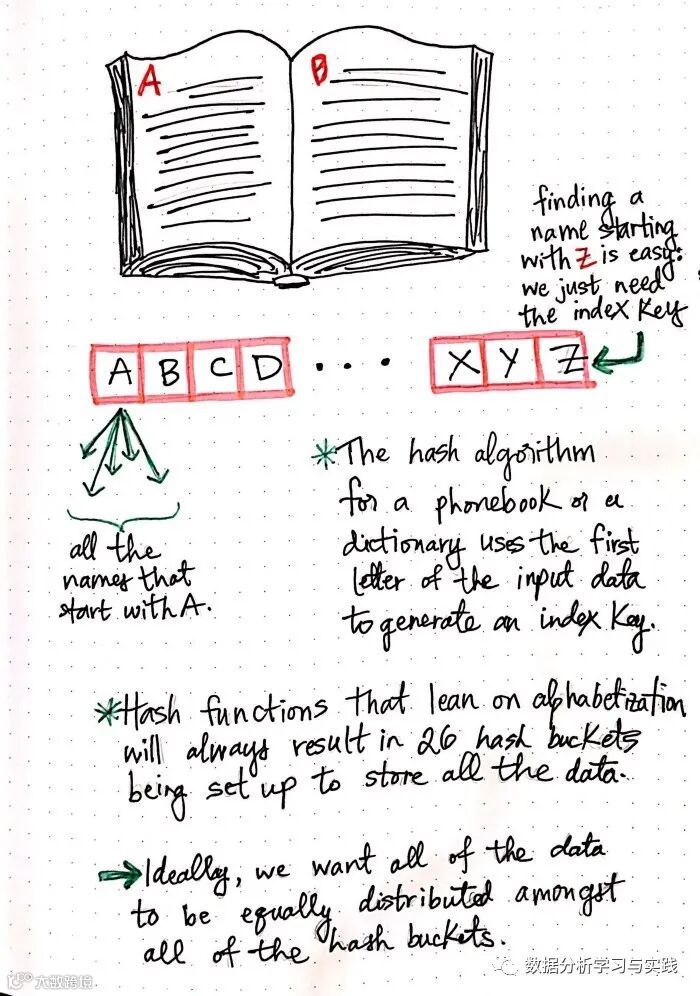 A
B
finding a
name starting
with Z is easy:
we just need
the index key
A B C D ・・・・ X Y Z
all the
names that
start with A.
*The hash algorithm
for a phonebook or a
dictionary uses the first
letter of the input data
to generate an index key.
*Hash functions that lean on alphabetization
will always result in 26 hash buckets
being set up to store all the data.
→Ideally, we want all of the data
to be equally distributed amongst
all of the hash buckets.
数据分析学习与实践
大数跨境